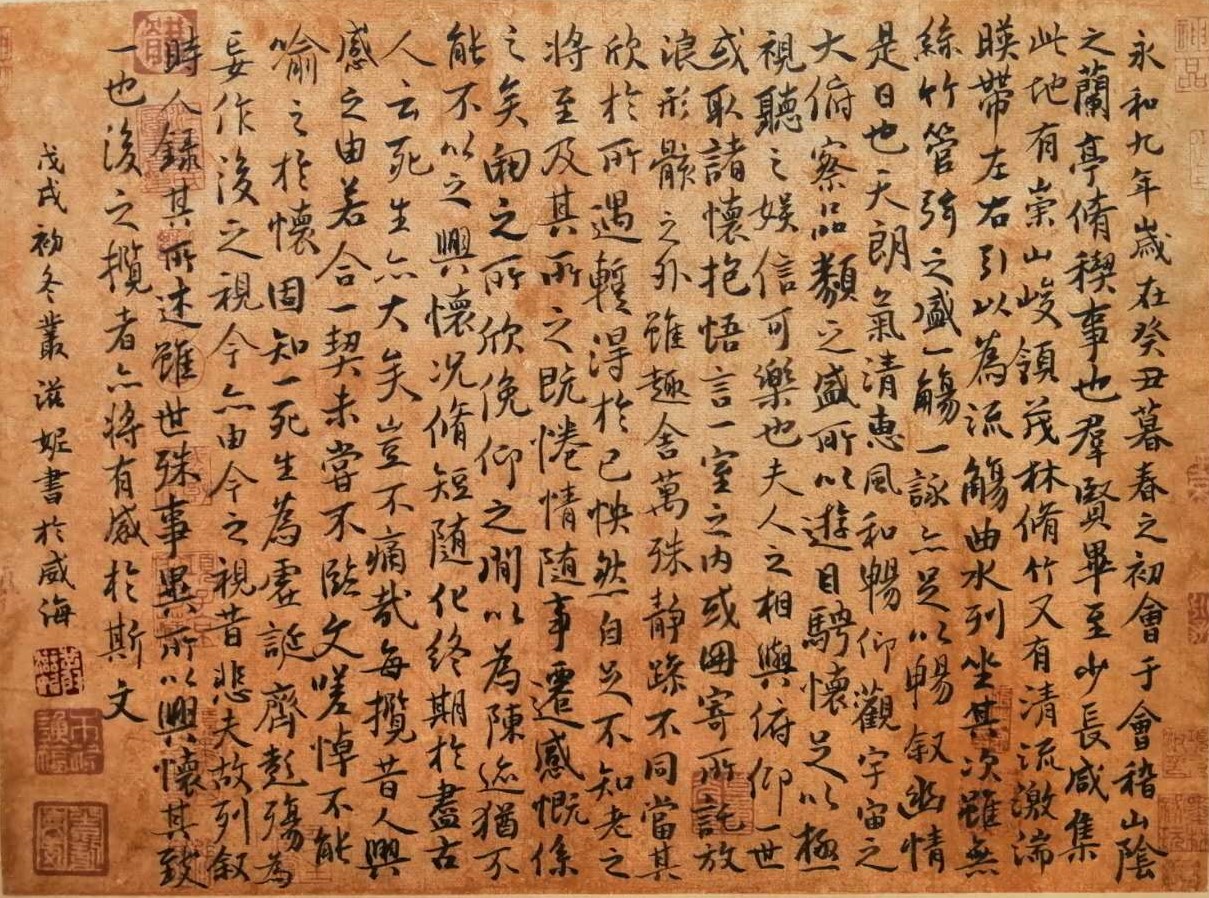 永和九年歲在癸丑暮春之初會于會稽山陰
之蘭亭脩稧事也羣賢畢至少長咸集
此地有崇山峻領茂林脩竹又有清流激湍
暎帶左右引以為流觴曲水列坐其次雖無
絲竹管弦之盛一觴一詠亦足以暢叙幽情
是日也天朗氣清惠風和暢仰觀宇宙之
大俯察品類之盛所以遊目騁懷足以極
視聽之娛信可樂也夫人之相與俯仰一世
或取諸懷抱悟言一室之內或因寄所託放
浪形骸之外雖趣舍萬殊靜躁不同當其
欣於所遇蹔得於己怏然自足不知老之
將至及其所之既惓情隨事遷感慨係
之矣向之所欣俛仰之閒以為陳迹猶不
能不以之興懷況脩短隨化終期於盡古
人云死生亦大矣豈不痛哉每攬昔人興
感之由若合一契未嘗不臨文嗟悼不能
喻之於懷固知一死生為虛誕齊彭殤為
妄作後之視今亦由今之視昔悲夫故列叙
時人錄其所述雖世殊事異所以興懷其致
一也後之攬者亦將有感於斯文
戊戌初冬叢滋妮書於威海